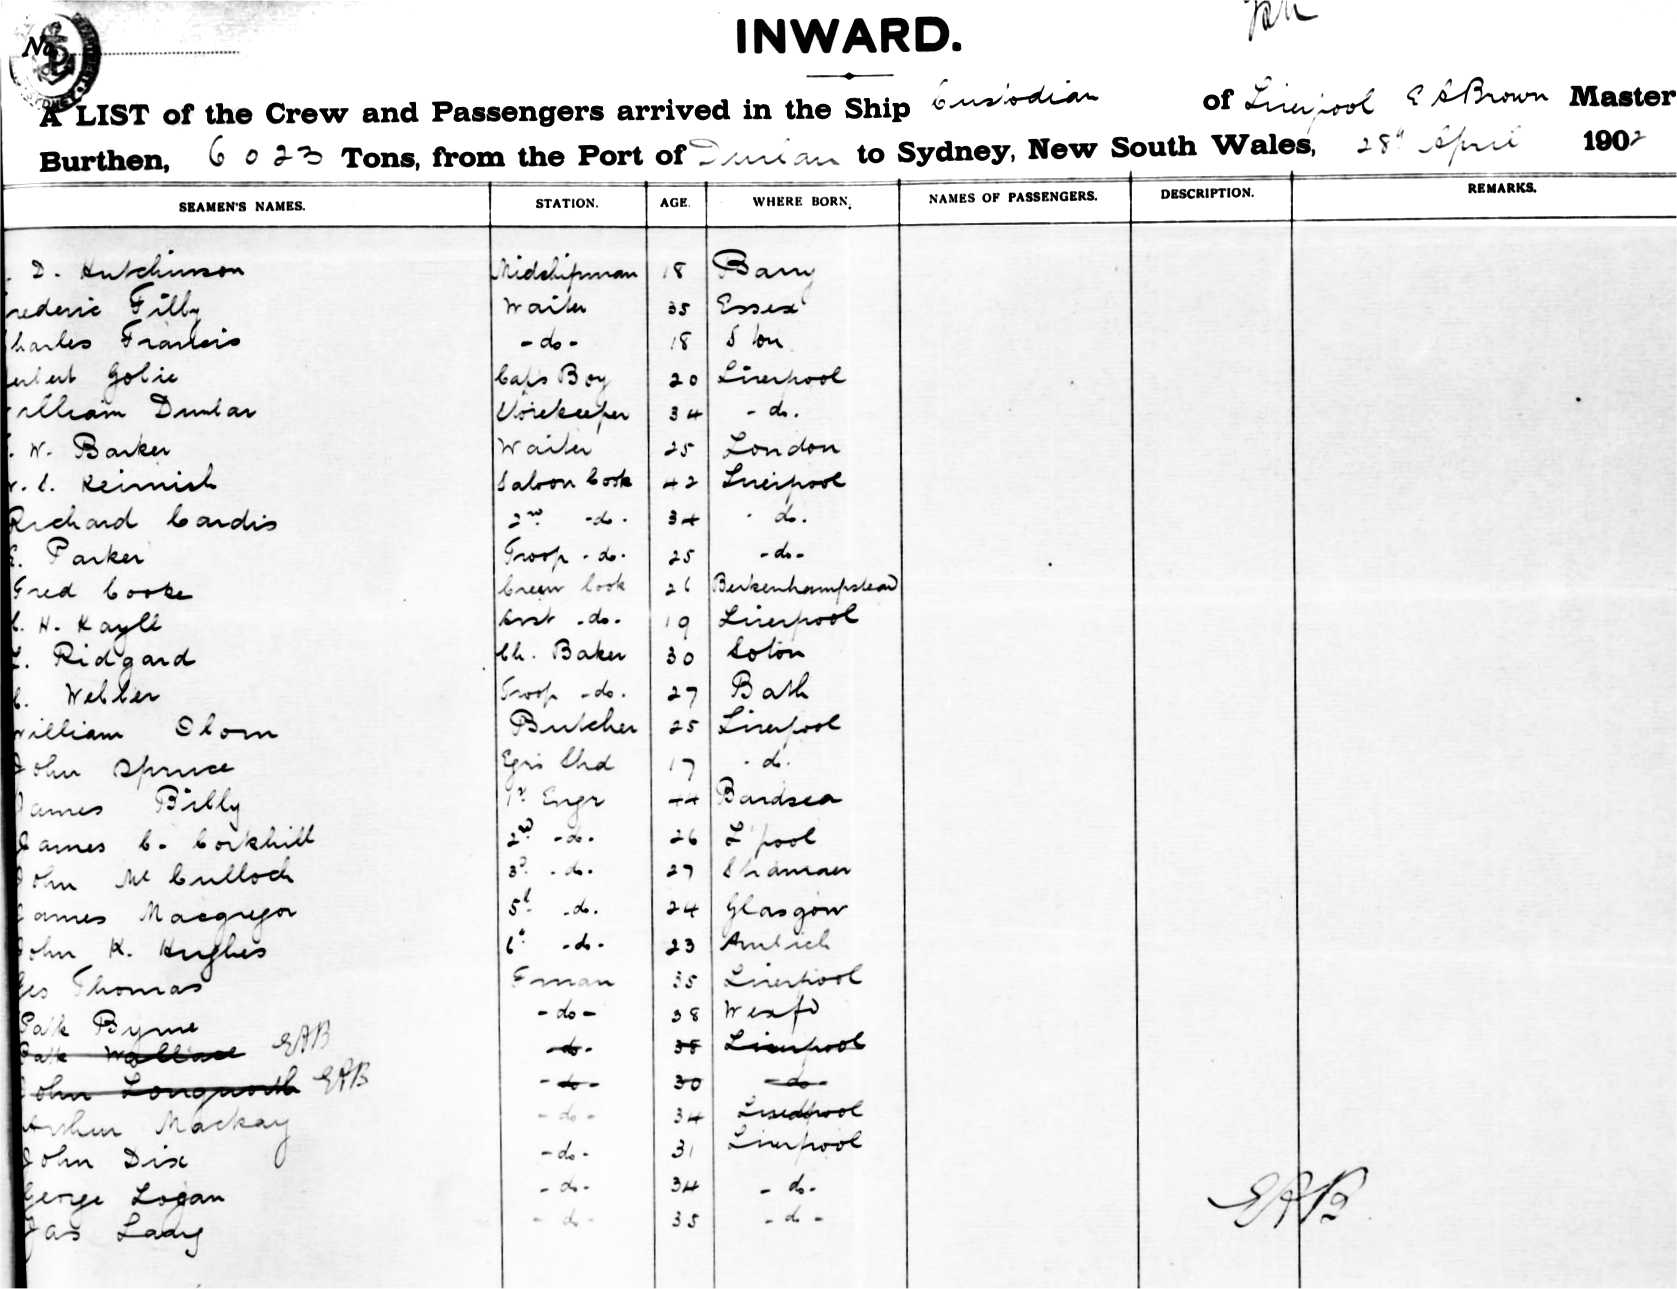 No
INWARD.
A LIST of the Crew and Passengers arrived in the Ship Custodian of Liverpool E A Brown Master
Burthen, 6023 Tons, from the Port of Durban to Sydney, New South Wales, 28th April 1902
SEAMEN'S NAMES. STATION. AGE. WHERE BORN. NAMES OF PASSENGERS. DESCRIPTION. REMARKS.
D. Hutchinson Midshipman 18 Barry
rederic Filby Waiter 35 Essex
harles Francis -do- 18 S'ton
erbert Golie Capts Boy 20 Liverpool
illiam Dunbar Storekeeper 34 -do.
. W. Barker Waiter 25 London
. C. Keinish Saloon Cook 42 Liverpool
Richard Cardis 2nd -do. 34 - do.
. Parker Troop -do. 25 -do-
Fred Cooke Crew Cook 26 Berkenhampstead
C. H. Kayll Asst -do. 19 Liverpool
. Ridgard Ch. Baker 30 Soton
C. Webber Troop -do. 27 Bath
William Olom Butcher 25 Liverpool
John Spruce 17 - do.
James Bibby 1st Engr 44 Bardsea
James C. Corkhill 2nd -do. 26 L'pool
John McCulloch 3d -do. 27
James Macgregor 5th -do. 24 Glasgow
John K. Hughes 6th -do- 23 Amlwch
Thomas Fman 35 Liverpool
Patk Byrne -do- 38 Wexfd
Patk Wallace EAB -do- 38 Liverpool
John Longworth EAB -do- 30 -do-
Arthur Mackay -do- 34 Liverpool
John Dix -do- 31 Liverpool
George Logan -do- 34 - do-
Jas Lady - do- 35 - do -
EAB